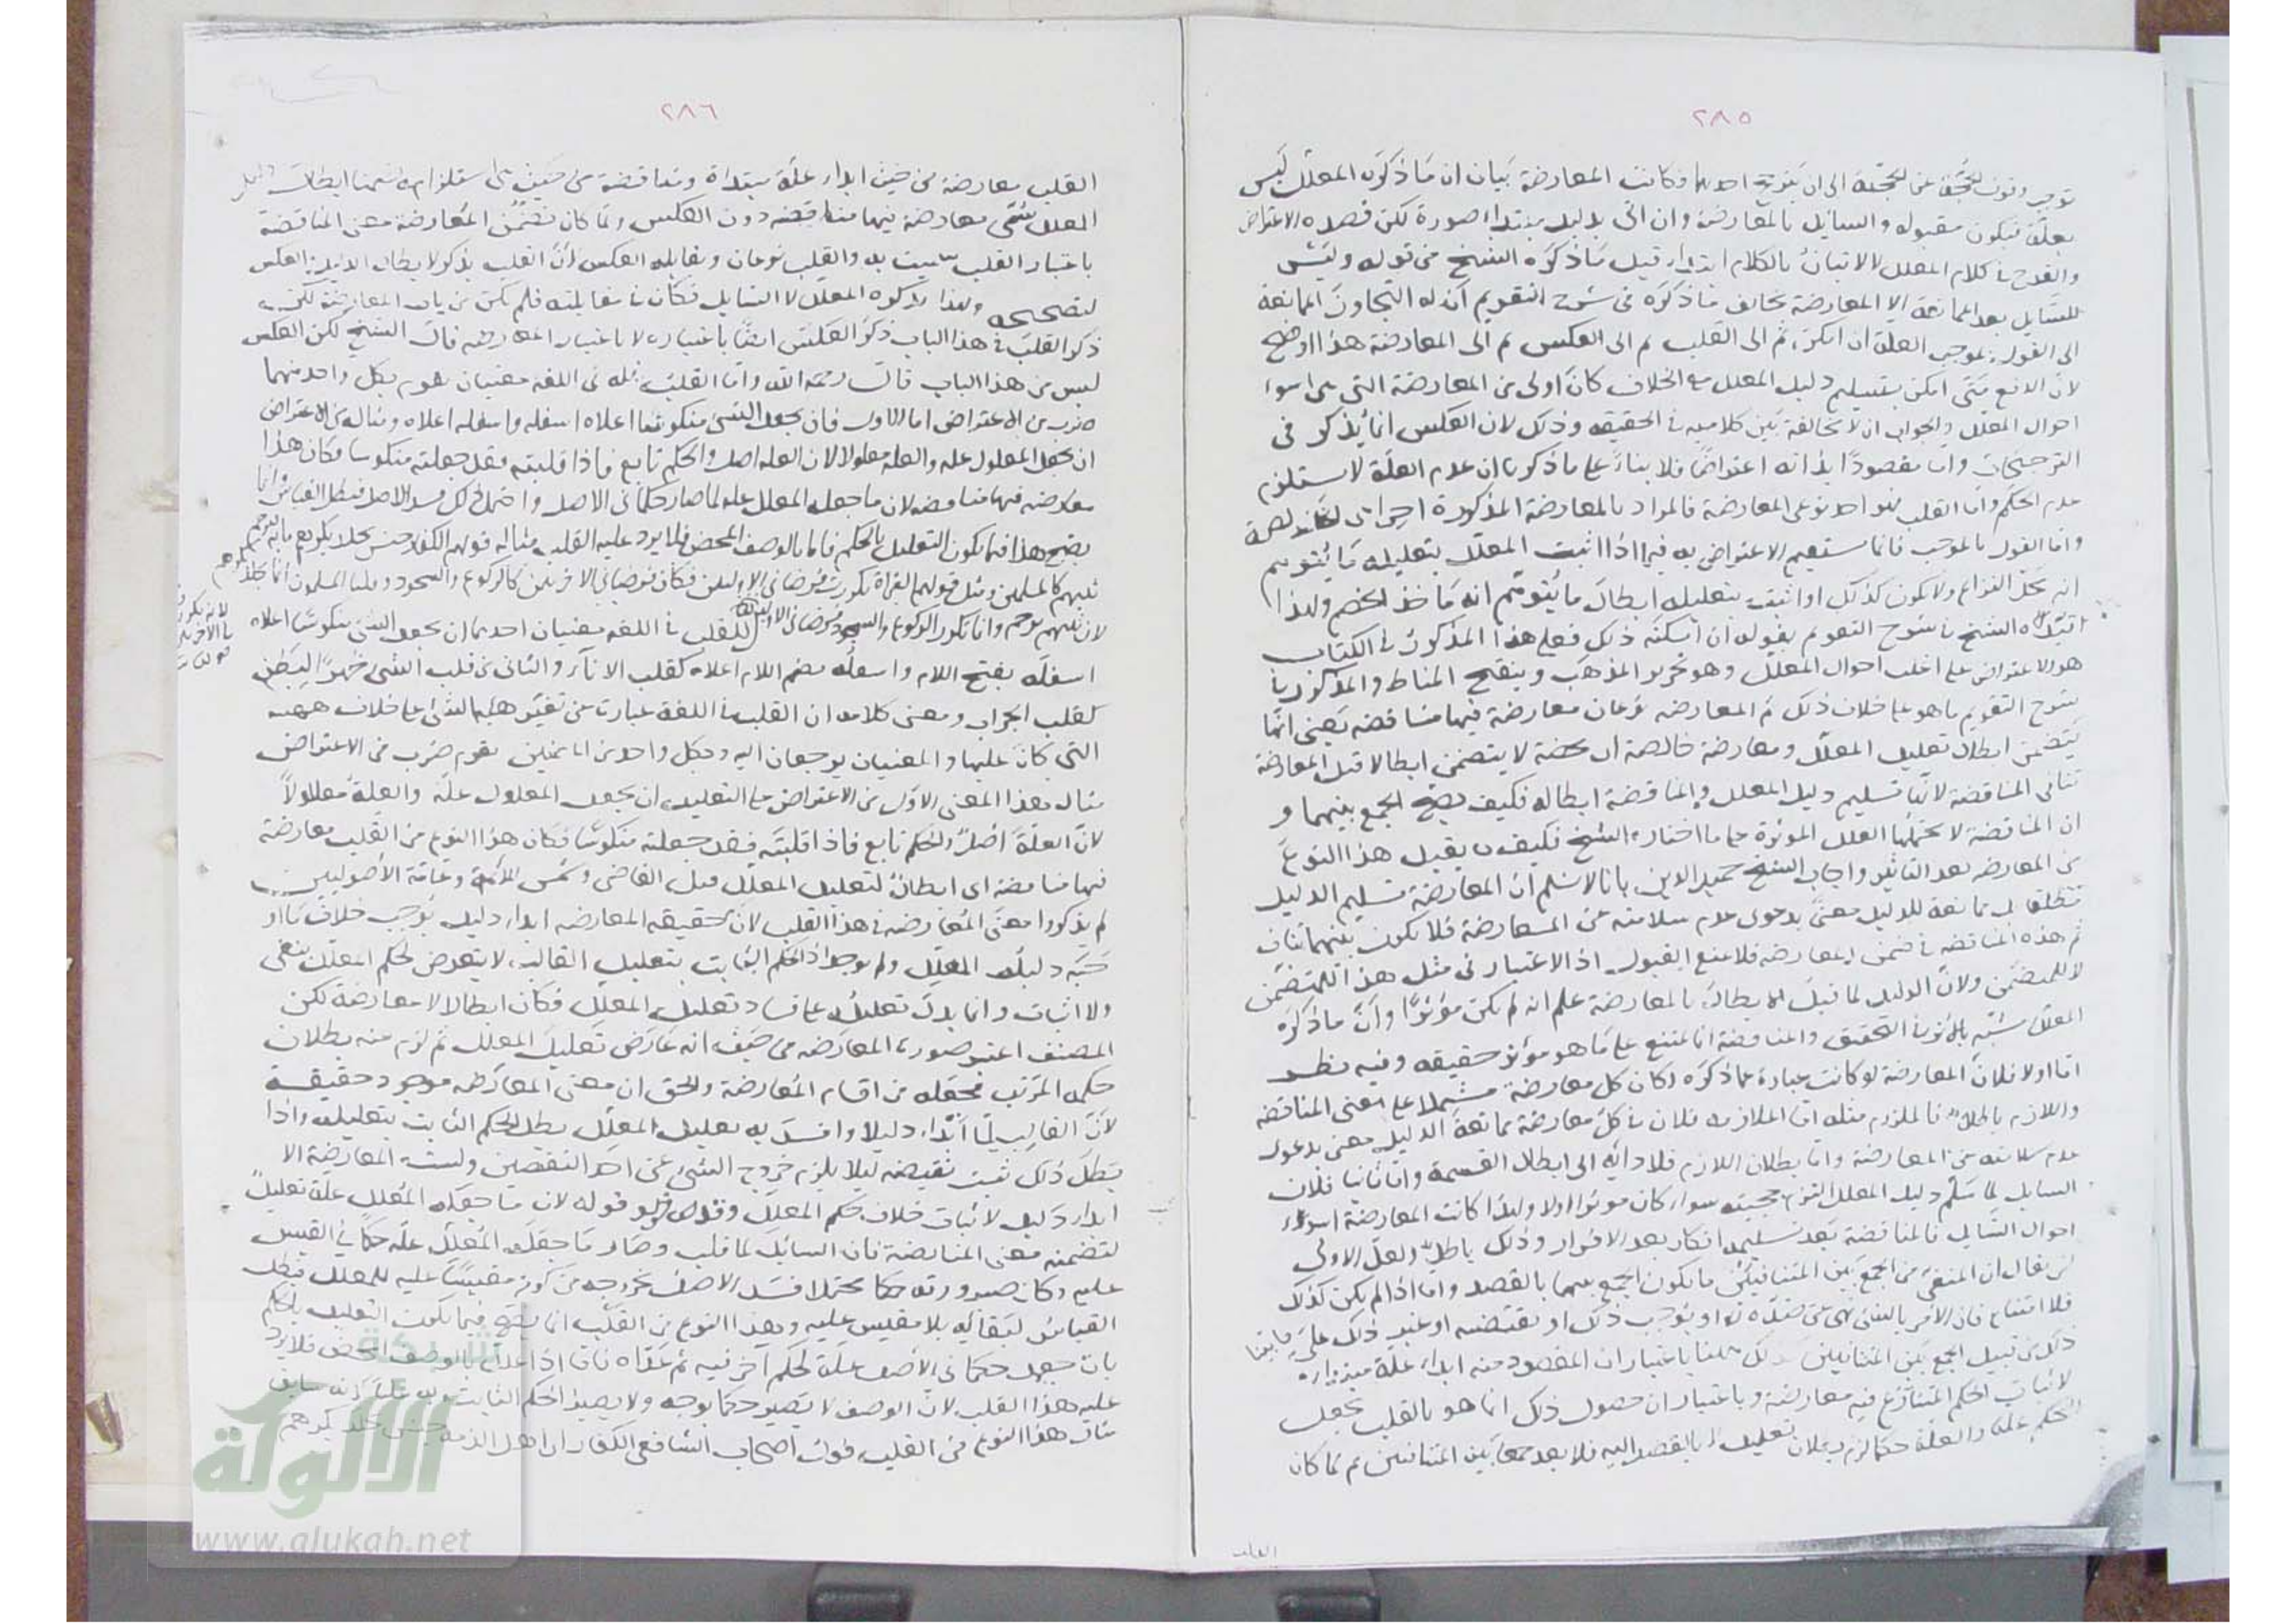 ٢٨٥
توجب وقوف الحجة على الحجة الى ان يترجح احدهما وكانت المعارضة بيان ان ما ذكره المعلل ليس
بعلة فيكون مقبوله والسايل بالمعارضة وان اتى بدليل مبتداء صورة لكن قصده الاعتراض
والقدح في كلام المعلل لا الاتيان بالكلام ابتداء قيل ما ذكره الشيخ من قوله وليس
للسايل بعد الممانعة الا المعارضة يخالف ما ذكره في شرح التقويم ان له التجاوز الممانعة
الى القول بموجب العلة ان امكن ثم الى القلب ثم الى العكس ثم الى المعارضة هذا اوضح
لان الدفع متى امكن بتسليم دليل المعلل مع الخلاف كان اولى من المعارضة التى هى اسوء
احوال المعلل والجواب ان لا مخالفة بين كلاميه في الحقيقه وذلك لان العكس انما يذكر في
الترجيحات واما مقصودا بذاته اعتراضا فلا بناء على ما ذكر ان عدم العلة لا يستلزم
عدم الحكم واما القلب فهو احد نوعى المعارضة فالمراد بالمعارضة المذكورة اخرا هى الخالصة
واما القول بالموجب فانما يستقيم الاعتراض به فيما اذا اثبت المعلل بتعليله ما يتوهم
انه محل النزاع ولا يكون كذلك او اثبت بتعليله ابطال ما يتوهم انه ماخذ الخصم ولهذا
قيده الشيخ في شرح التقويم بقوله ان امكنه ذلك فعلى هذا المذكور في الكتاب
هو الاعتراض على اغلب احوال المعلل وهو تحرير المذهب وتنقيح المناط والمذكور في
شرح التقويم ما هو على خلاف ذلك ثم المعارضه نوعان معارضة فيها مناقضه يعنى انها
تتضمن ابطال تعليل المعلل ومعارضة خالصة اى محضة لا يتضمن ابطالا قبل المعارضة
تنافى المناقضة لانها تسليم دليل المعلل والمناقضة ابطاله فكيف يصح الجمع بينهما و
ان المناقضة لا يحتملها العلل الموثرة على ما اختاره الشيخ فكيف يقبل هذا النوع
من المعارضه بعد التاثير واجاب الشيخ حميد الدين بانا لا نسلم ان المعارضة تسليم الدليل
مطلقا بل ممانعة للدليل معنى بدعوى عدم سلامته عن المعارضة فلا يكون بينهما تناف
ثم هذه المناقضه في ضمن المعارضه فلا يمنع القبول اذ الاعتبار في مثل هذا للمتضمن
لا للمتضمن ولان الدليل لما قبل الابطال بالمعارضة علم انه لم يكن موثرا وان ما ذكره
المعلل شبيه بالموثر في التحقيق والمناقضة انما تمتنع على ما هو مؤثر حقيقه وفيه نظر
اما اولا فلان المعارضة لو كانت عبارة عما ذكره لكان كل معارضة مشتملا على معنى المناقضه
واللازم باطل فالملزوم مثله اما الملازمه فلان في كل معارضة ممانعة الدليل معنى بدعوى
عدم سلامته عن المعارضة واما بطلان اللازم فلادائه الى ابطال القسمة واما ثانيا فلان
السايل لما سلم دليل المعلل التزم حجيته سواء كان موثرا اولا ولهذا كانت المعارضة اسوء
احوال السايل فالمناقضة بعد تسليمه انكار بعد الاقرار وذلك باطل ولعل الاولى
ان يقال ان المنفى من الجمع بين المتنافيين ما يكون الجمع بينهما بالقصد واما اذا لم يكن كذلك
فلا امتناع فان الامر بالشئ نهى عن ضده او يوجب ذلك او يقتضيه او غير ذلك على ما بينا
ذلك من قبيل الجمع بين المتنافيين كذلك ههنا باعتبار ان المقصود منه ابداء علة مبتداة
لاثبات الحكم المتنازع فيه معارضة وباعتبار ان حصول ذلك انما هو بالقلب بجعل
الحكم علة والعلة حكما لزم بطلان تعليله لا بالقصد اليه فلا يعد جمعا بين المتنافيين ثم لما كان
القلب
٢٨٦
القلب معارضة من حيث ابداء علة مبتداة ومناقضة من حيث استلزامه ضمنا ابطال دليل
المعلل سمى معارضة فيها مناقضه دون العكس ولما كان تضمن المعارضة معنى المناقضة
باعتبار القلب سميت به والقلب نوعان ويقابله العكس لان القلب يذكر لابطال الدليل والعكس
لتصحيحه ولهذا يذكره المعلل لا السايل فكان في مقابلته فلم يكن من باب المعارضة لكن
ذكر القلب في هذا الباب ذكر العكس ايضا باعتباره لا باعتبار المعارضه قال الشيخ لكن العكس
ليس من هذا الباب قال رحمه الله واما القلب فله في اللغة معنيان يقوم بكل واحد منهما
ضرب من الاعتراض اما الاول فان يجعل الشئ منكوسا اعلاه اسفله واسفله اعلاه ومثاله من الاعتراض
ان يجعل المعلول علة والعلة معلولا لان العلة اصل والحكم تابع فاذا قلبته فقد جعلته منكوسا فكان هذا
معارضه فيها مناقضه لان ما جعله المعلل علة لما صار حكما في الاصل واحتمل ذلك فسد الاصل فبطل القياس وانما
يصح هذا فيما يكون التعليل بالحكم فاما بالوصف المحض فلا يرد عليه القلب مثاله قولهم الكفار جنس يجلد بكرهم مايه فيرجم
ثيبهم كالمسلمين ومثل قولهم القراة تكررت فرضا في الاوليين فكان فرضا في الاخريين كالركوع والسجود وقلنا المسلمون انما يجلد بكرهم
لان ثيبهم يرجم وانما تكرر الركوع والسجود فرضا في الاوليين للقلب في اللغه معنيان احدهما ان يجعل الشئ منكوسا اعلاه
لانه تكرر
في الاخريين
اسفله بفتح اللام واسفله بضم اللام اعلاه كقلب الاناء والثانى من قلب الشئ ظهرا لبطن
كقلب الجراب ومعنى كلامه ان القلب في اللغة عبارة عن تغير هيئة الشئ على خلاف هيئته
التى كان عليها والمعنيان يرجعان اليه وبكل واحد من المعنيين يقوم ضرب من الاعتراض
مثال هذا المعنى الاول من الاعتراض على التعليل ان يجعل المعلول علة والعلة معلولا
لان العلة اصل والحكم تابع فاذا قلبته فقد جعلته منكوسا فكان هذا النوع من القلب معارضة
فيها مناقضة اى ابطال لتعليل المعلل قيل القاضى وشمس الائمة وعامة الاصوليين
لم يذكروا معنى المعارضة في هذا القلب لان حقيقه المعارضه ابداء دليل يوجب خلاف ما او
جبه دليل المعلل ولم يوجد اذ الحكم الثابت بتعليل القالب لا يتعرض لحكم المعلل بنفى
ولا اثبات وانما يدل تعليله على فساد تعليل المعلل فكان ابطالا لا معارضة لكن
المصنف اعتبر صورة المعارضه من حيث انه عارض تعليل المعلل ثم لزم منه بطلان
حكمه المرتب فجعله من اقسام المعارضة والحق ان معنى المعارضه موجود حقيقة
لان القالب لما ابداء دليلا وافسد به تعليل المعلل بطل الحكم الثابت بتعليله واذا
بطل ذلك ثبت نقيضه ليلا يلزم خروج الشئ عن احد النقيضين وليست المعارضة الا
ابداء دليل لاثبات خلاف حكم المعلل وقوله لان ما جعله المعلل علة تعليل
لتضمنه معنى المناقضة فان السائل لما قلب وصار ما جعله المعلل علة حكما في المقيس
عليه وكان صيرورته حكما محتملا فسد الاصل بخروجه من كونه مقيسا عليه للمعلل فبطل
القياس لبقائه بلا مقيس عليه وهذا النوع من القلب انما يصح فيما يكون التعليل بالحكم
بان جعل حكما في الاصل علة لحكم اخر فيه ثم عداه فاما اذا علل بالوصف المحض فلا يرد
عليه هذا القلب لان الوصف لا يصير حكما بوجه ولا يصير الحكم الثابت به علة لانه سابق
مثال هذا النوع من القلب قول اصحاب الشافعى الكفار اى اهل الذمة جنس يجلد بكرهم
شبكة
الألوكة
www.alukah.net